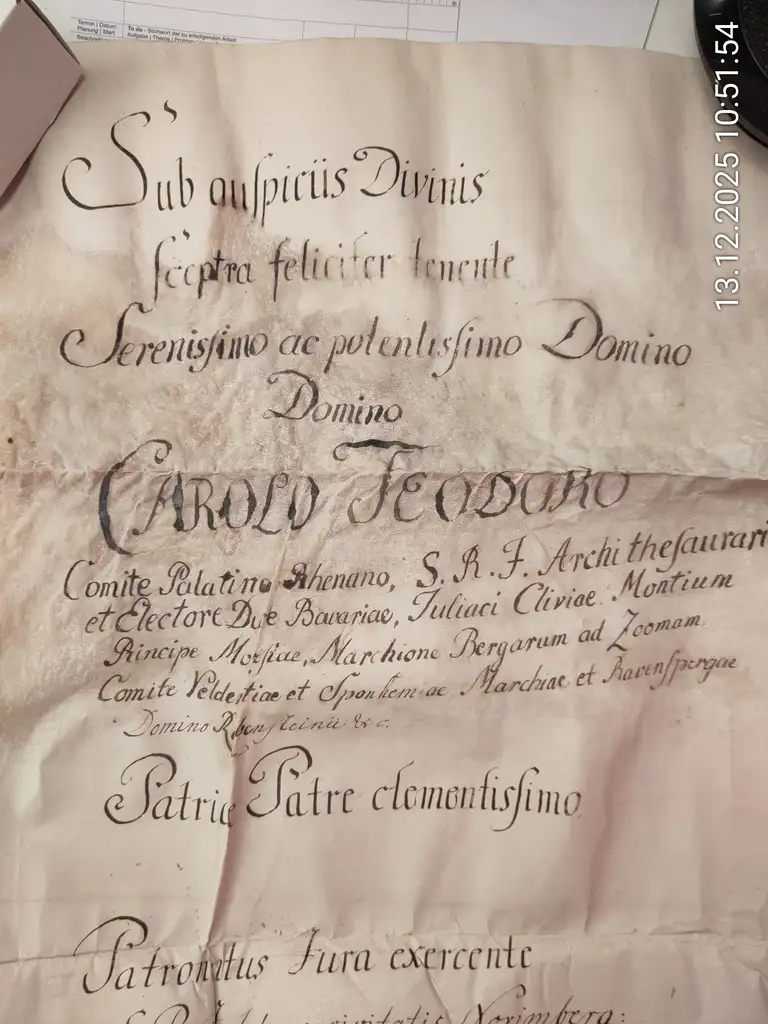 Termin | Datum
Planung | Start
To do - Stichwort der zu erledigenden Arbeit
Aufgabe | Thema | Problem
13.12.2025 10:51:54
Sub auſpiciis Divinis
ſceptra feliciter tenente
Sereniſſimo ac potentiſſimo Domino
Domino
CAROLO TEODORO
Comite Palatino Rhenano, S. R. I. Archi theſaurari
et Electore Duce Bavariae, Iuliaci Cliviae Montium
Principe Morſiae, Marchione Bergarum ad Zoomam
Comite Veldentiae et Sponhemiae Marchiae et Ravenſpergae
Domino Rbenſteinii &c.
Patriae Patre clementiſſimo
Patronatus Jura exercente
civitatis Norimberg: